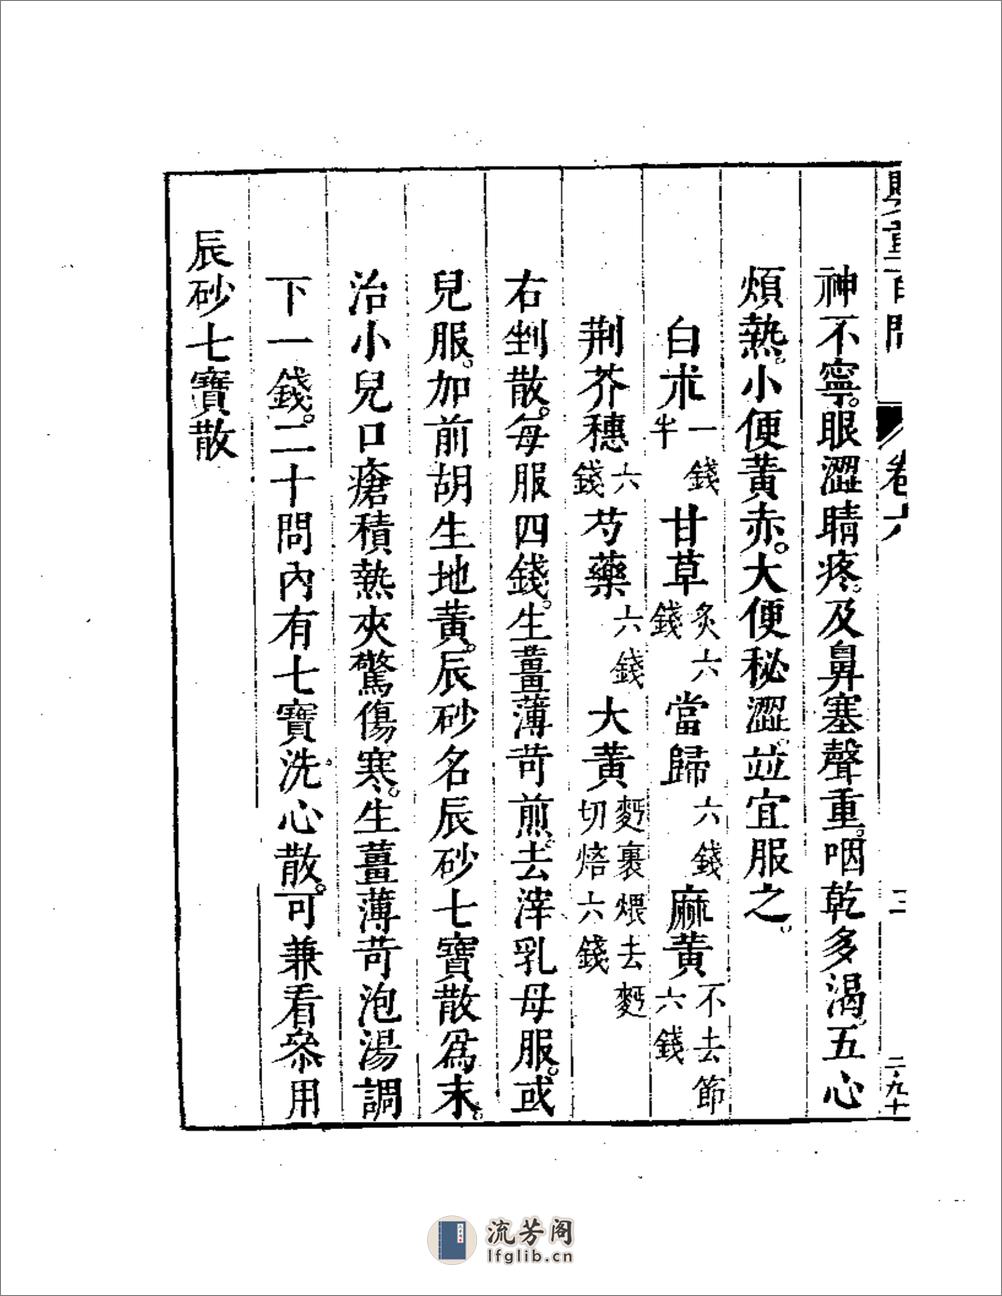 嬰童百問 卷六 三 二九十
神不寧。眼澀睛疼。及鼻塞聲重。咽乾多渴。五心
煩熱。小便黃赤。大便秘澀。並宜服之。
白朮一錢半 甘草炙六錢 當歸六錢 麻黃不去節六錢
荆芥穗六錢 芍藥六錢 大黃麪裹煨去麪切焙六錢
右剉散。每服四錢。生薑薄苛煎。去滓乳母服。或
兒服。加前胡生地黃。辰砂名辰砂七寶散爲末。
治小兒口瘡積熱夾驚傷寒。生薑薄苛泡湯調
下一錢。二十問內有七寶洗心散。可兼看叅用
辰砂七寶散
流芳阁
lfglib.cn